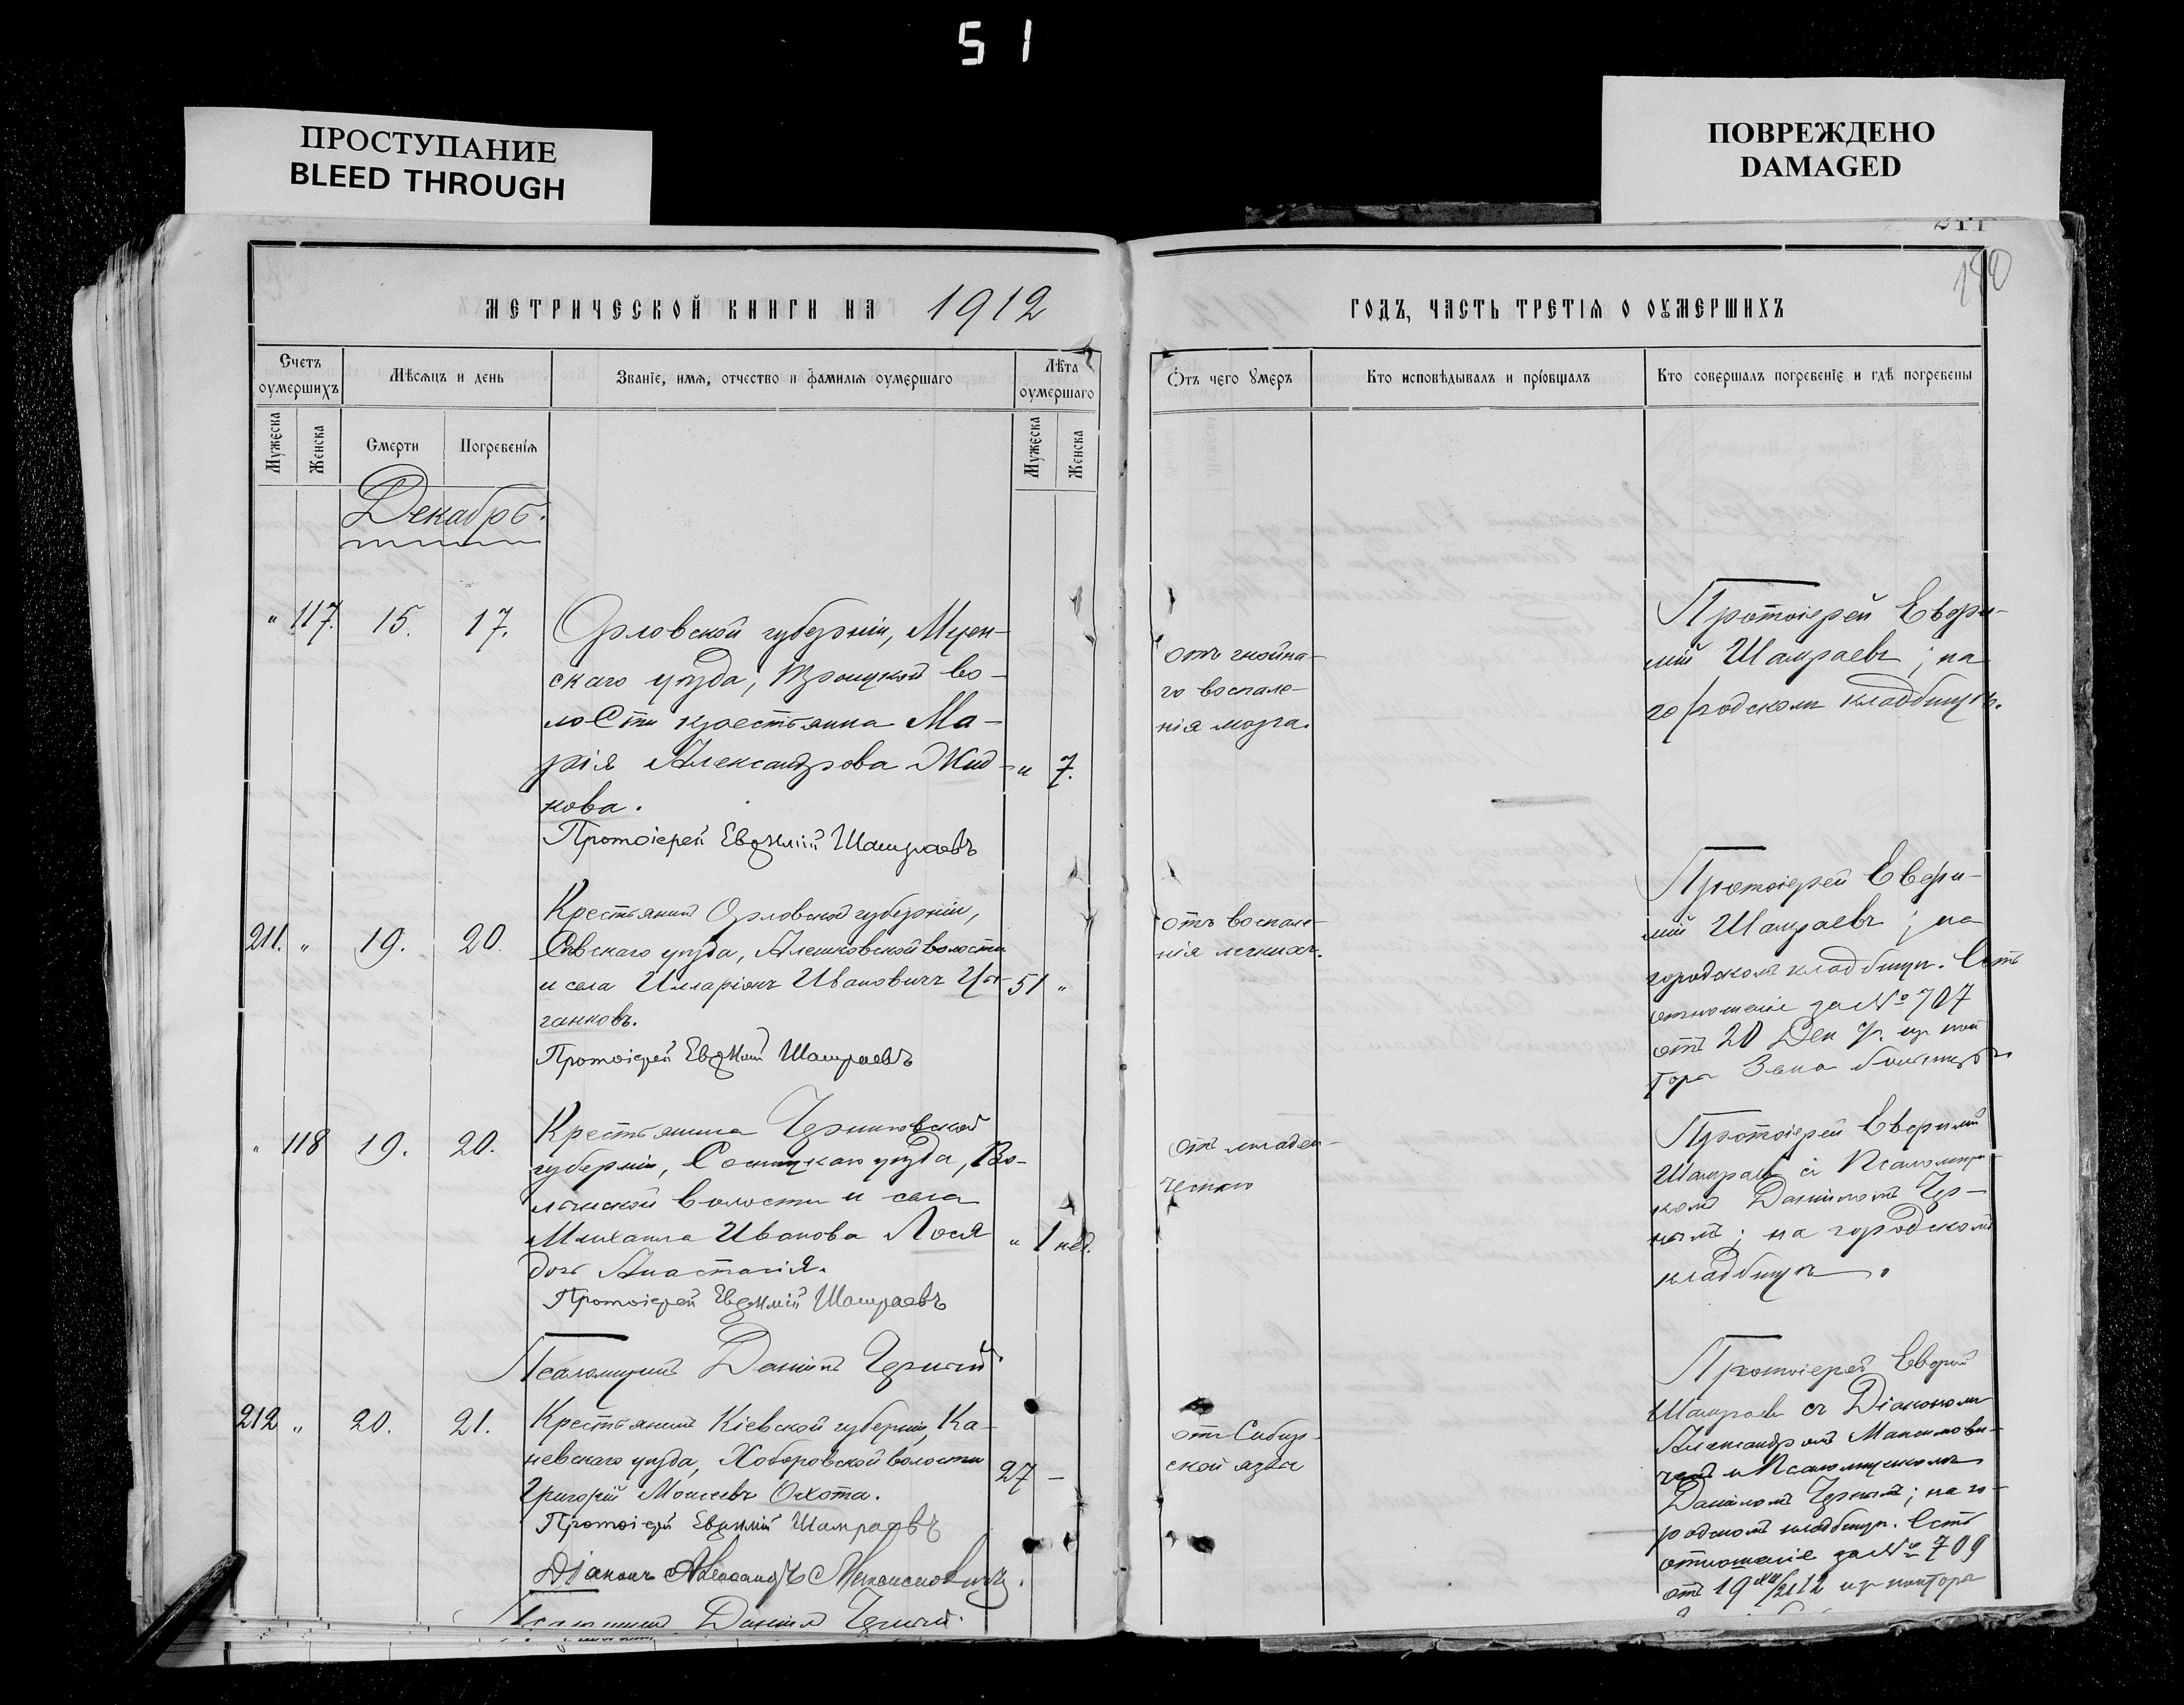 51
ПРОСТУПАНИЕ
BLEED THROUGH
ПОВРЕЖДЕНО
DAMAGED
211
МЕТРИЧЕСКОЙ КНИГИ НА 1912
ГОДЪ, ЧАСТЬ ТРЕТІѦ О ОУМЕРШИХЪ
Счетъ оумершихъ
Мѣсѧцъ и день
Званіе, имѧ, отчество и фамиліѧ оумершаго
Лѣта оумершаго
Ѿтъ чего ꙋмеръ
Кто исповѣдывалъ и пріобщалъ
Кто совершалъ погребеніе и гдѣ погребены
Мужеска
Женска
Смерти
Погребеніѧ
Мужеска
Женска
Декабрь.
" 117. 15. 17.
Орловской губерніи, Мцен-
скаго уѣзда, Троицкой во-
лости крестьянка Ма-
рія Александрова Жид-
кова.
" 7.
Протоіерей Евѳимій Шамраевъ
отъ гнойна-
го воспале-
нія мозга.
Протоіерей Евѳи-
мій Шамраевъ; на
городскомъ кладбищѣ.
211. " 19. 20.
Крестьянинъ Орловской губерніи,
Сѣвскаго уѣзда, Алешковской волости
и села Илларіонъ Ивановичъ Цы-
ганковъ.
51 "
Протоіерей Евѳимій Шамраевъ
отъ воспале-
нія легкихъ.
Протоіерей Евѳи-
мій Шамраевъ; на
городскомъ кладбищѣ. Есть
отношеніе за № 707
отъ 20 Дек
больницы.
" 118 19. 20.
Крестьянина Черниговской
губерніи, Сосницкаго уѣзда, Во-
лынской волости и села
Михаила Иванова Лося
дочь Анастасія.
" 1 нед.
Протоіерей Евѳимій Шамраевъ
Псаломщикъ Даніилъ Черный.
отъ младен-
ческаго
Протоіерей Евѳимій
Шамраевъ съ Псаломщи-
комъ Даніиломъ Чер-
нымъ; на городскомъ
кладбищѣ.
212 " 20. 21.
Крестьянинъ Кіевской губерніи, Ка-
невскаго уѣзда, Ходоровской волости
Григорій Моисеевъ Охота.
27 —
Протоіерей Евѳимій Шамраевъ
Діаконъ Александръ Максимовичъ.
Псаломщикъ Даніилъ Черный.
отъ Сибир-
ской язвы
Протоіерей Евѳимій
Шамраевъ съ Діакономъ
Александромъ Максимови-
чемъ и Псаломщикомъ
Даніиломъ Чернымъ; на го-
родскомъ кладбищѣ. Есть
отношеніе за № 709
отъ 19 изъ конторы